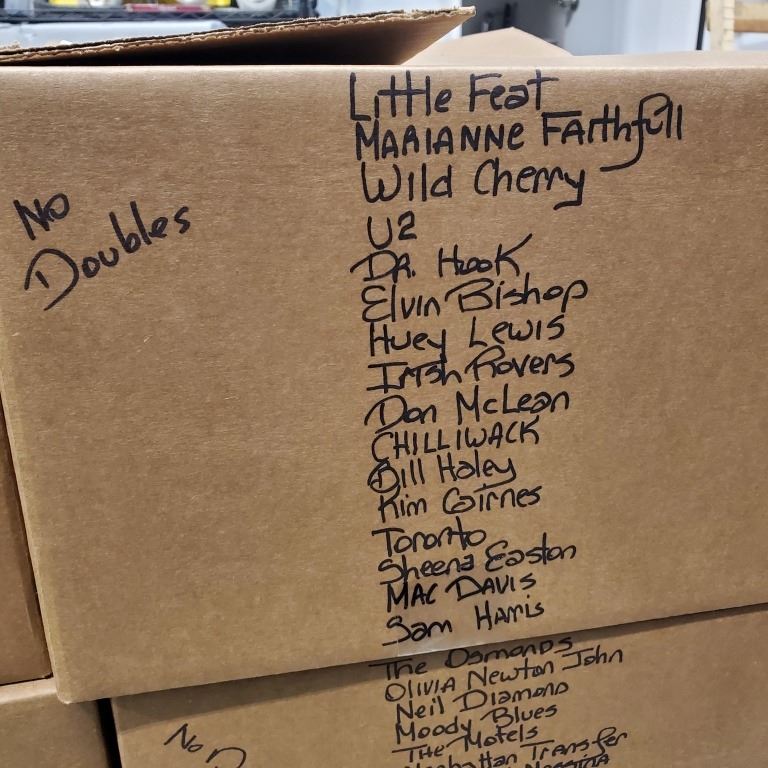 No
Doubles
Little Feat
MARIANNE Faithfull
Wild Cherry
U2
DR. Hook
Elvin Bishop
Huey Lewis
Irish Rovers
Don McLean
CHILLIWACK
Bill Haley
Kim Cairnes
Toronto
Sheena Easton
MAC DAVIS
Sam Harris
The Osmonds
OLIVIA Newton John
Neil Diamond
Moody Blues
THE Motels
Manhattan Transfer
Messina
No